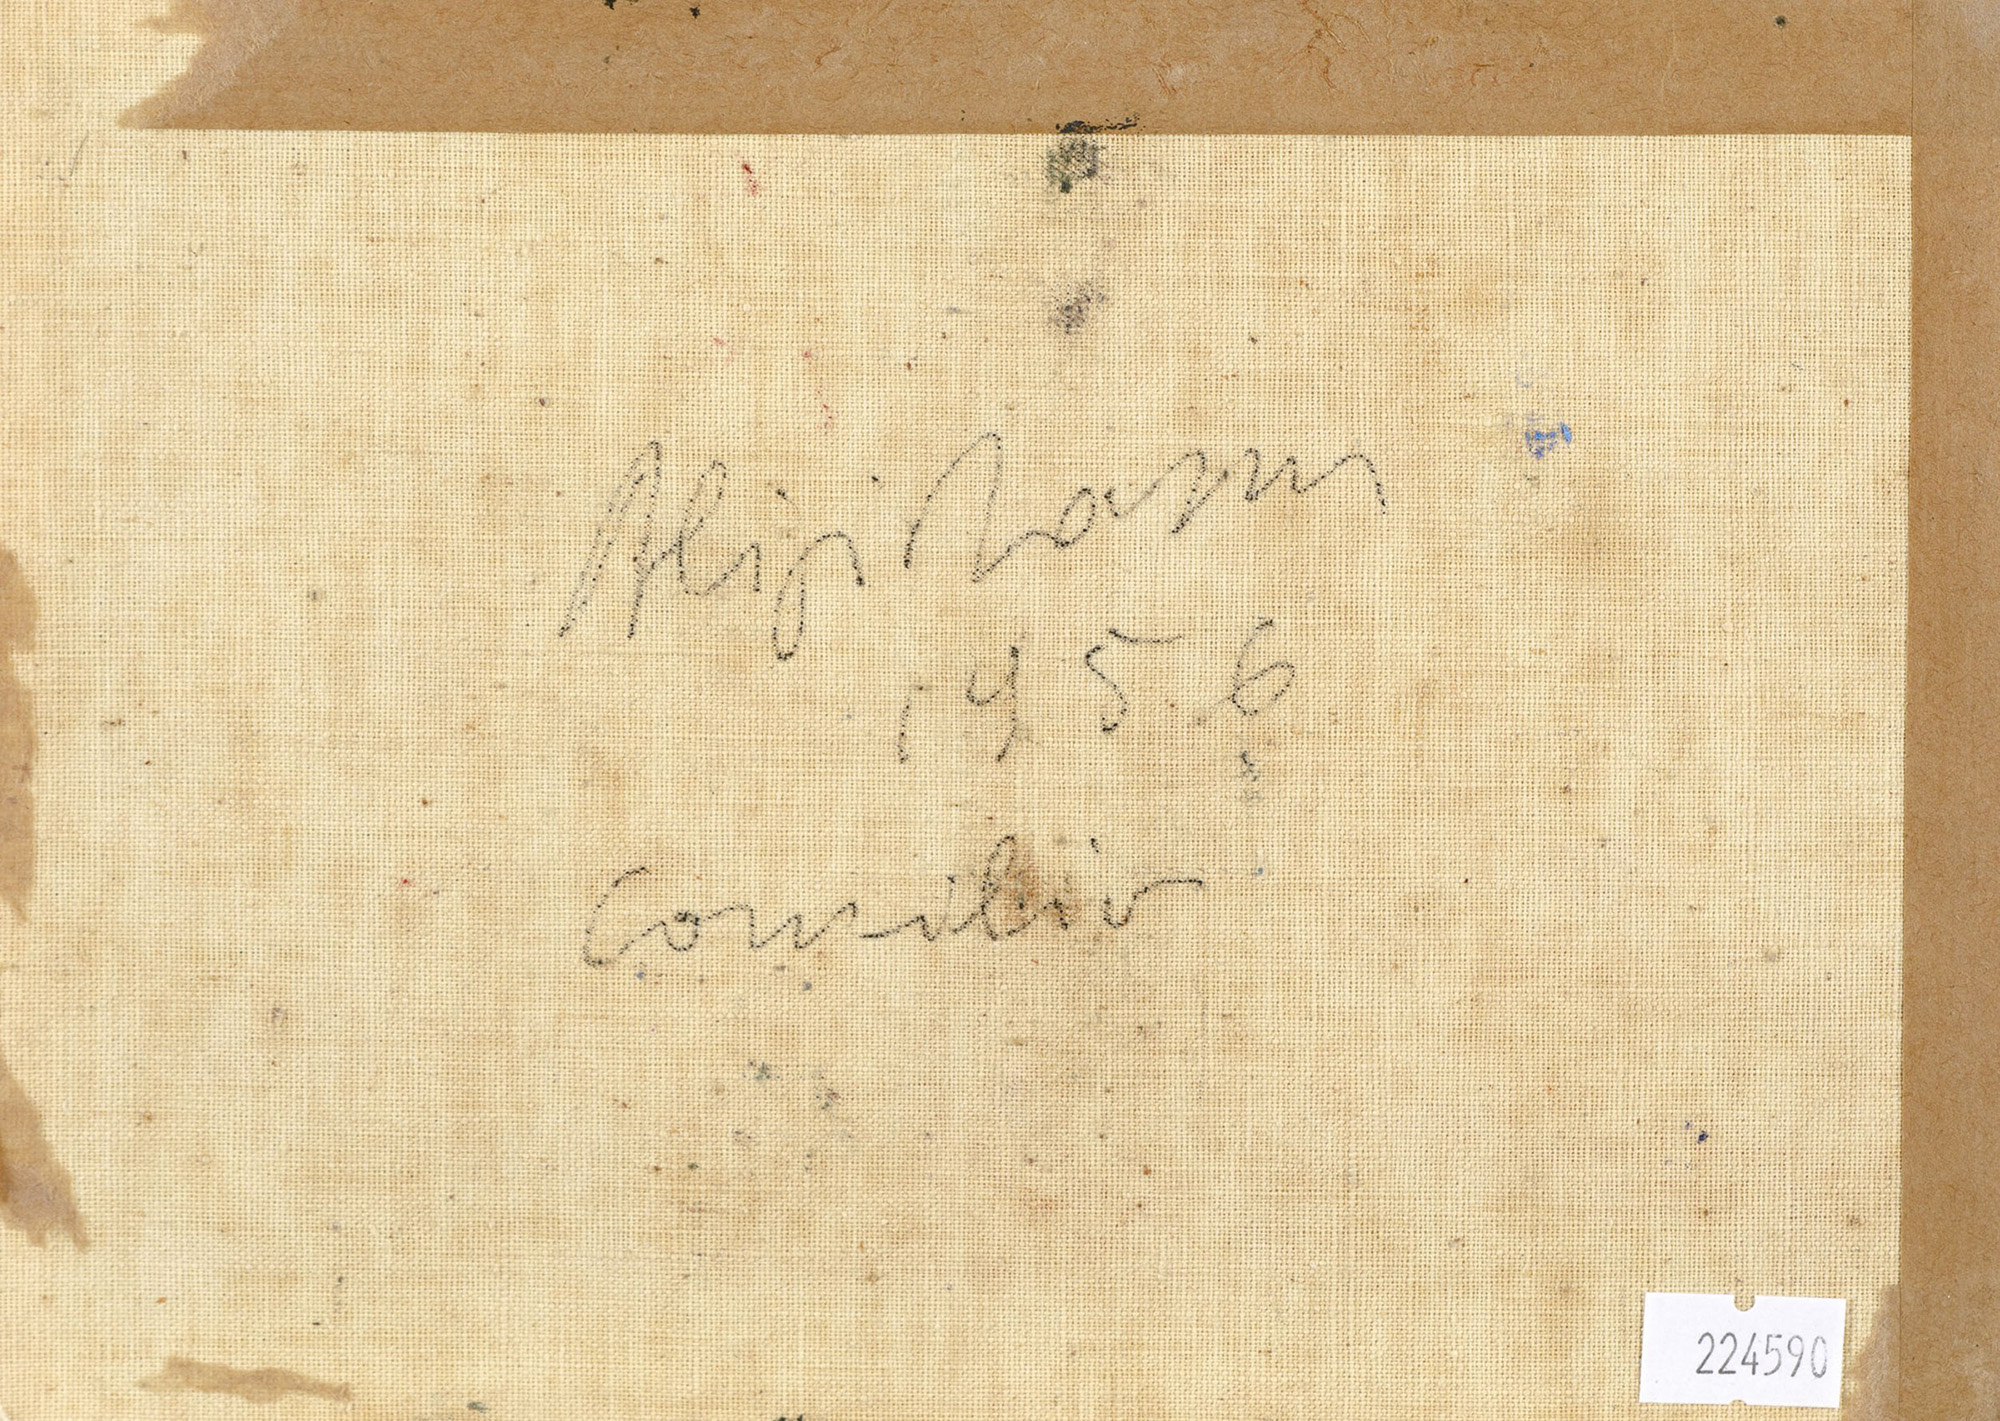 Aligi Sassu
1956
Concilio
224590